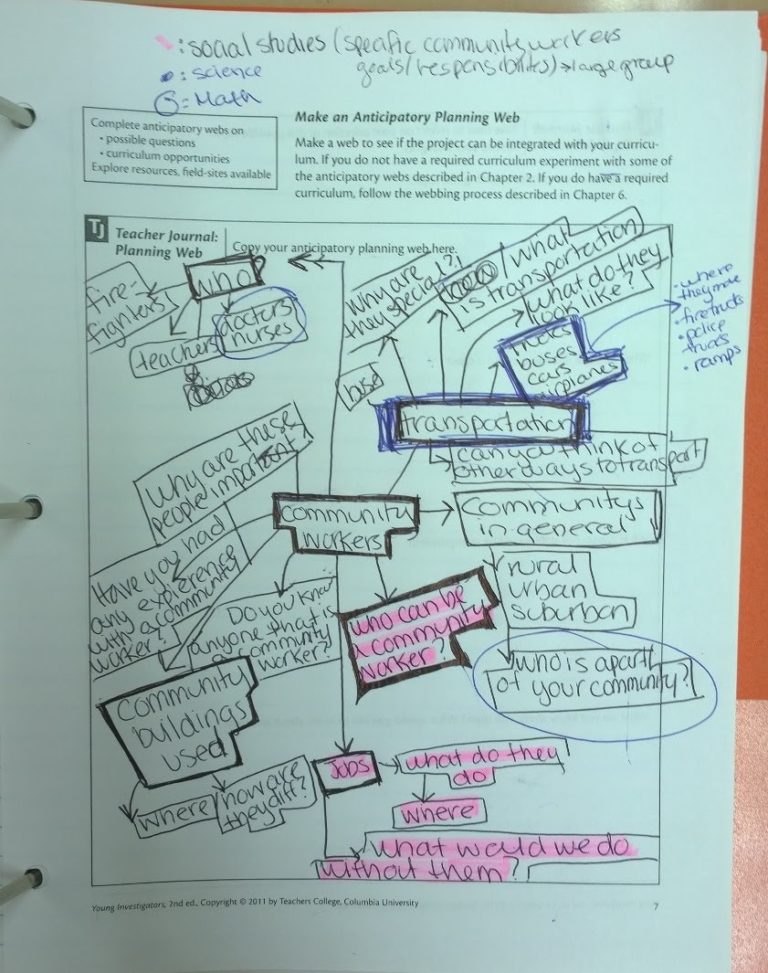 : social studies (specific community workers
goals/responsibilites) → large group
: science
= Math
Complete anticipatory webs on
• possible questions
• curriculum opportunities
Explore resources, field-sites available
Make an Anticipatory Planning Web
Make a web to see if the project can be integrated with your curricu-
lum. If you do not have a required curriculum experiment with some of
the anticipatory webs described in Chapter 2. If you do have a required
curriculum, follow the webbing process described in Chapter 6.
TJ
Teacher Journal:
Planning Web
Copy your anticipatory planning web here.
who?
fire-
fighters
teachers
doctors
nurses
why are
they special?
/ what
is transportation
what do they
look like?
trucks
buses
cars
airplanes
• where
they move
• firetrucks
• police
trucks
• ramps
transportation
can you think of
other ways to transport
why are these
people important?
community
workers
communitys
in general
rural
urban
suburban
who is apart
of your community?
Have you had
any explerence
with a community
worker?
Do you know
anyone that is
a community
worker?
who can be
a community
worker?
community
buildings
used
where
how are
they diff?
Jobs
what do they
do
where
what would we do
without them?
Young Investigators, 2nd ed., Copyright © 2011 by Teachers College, Columbia University
7